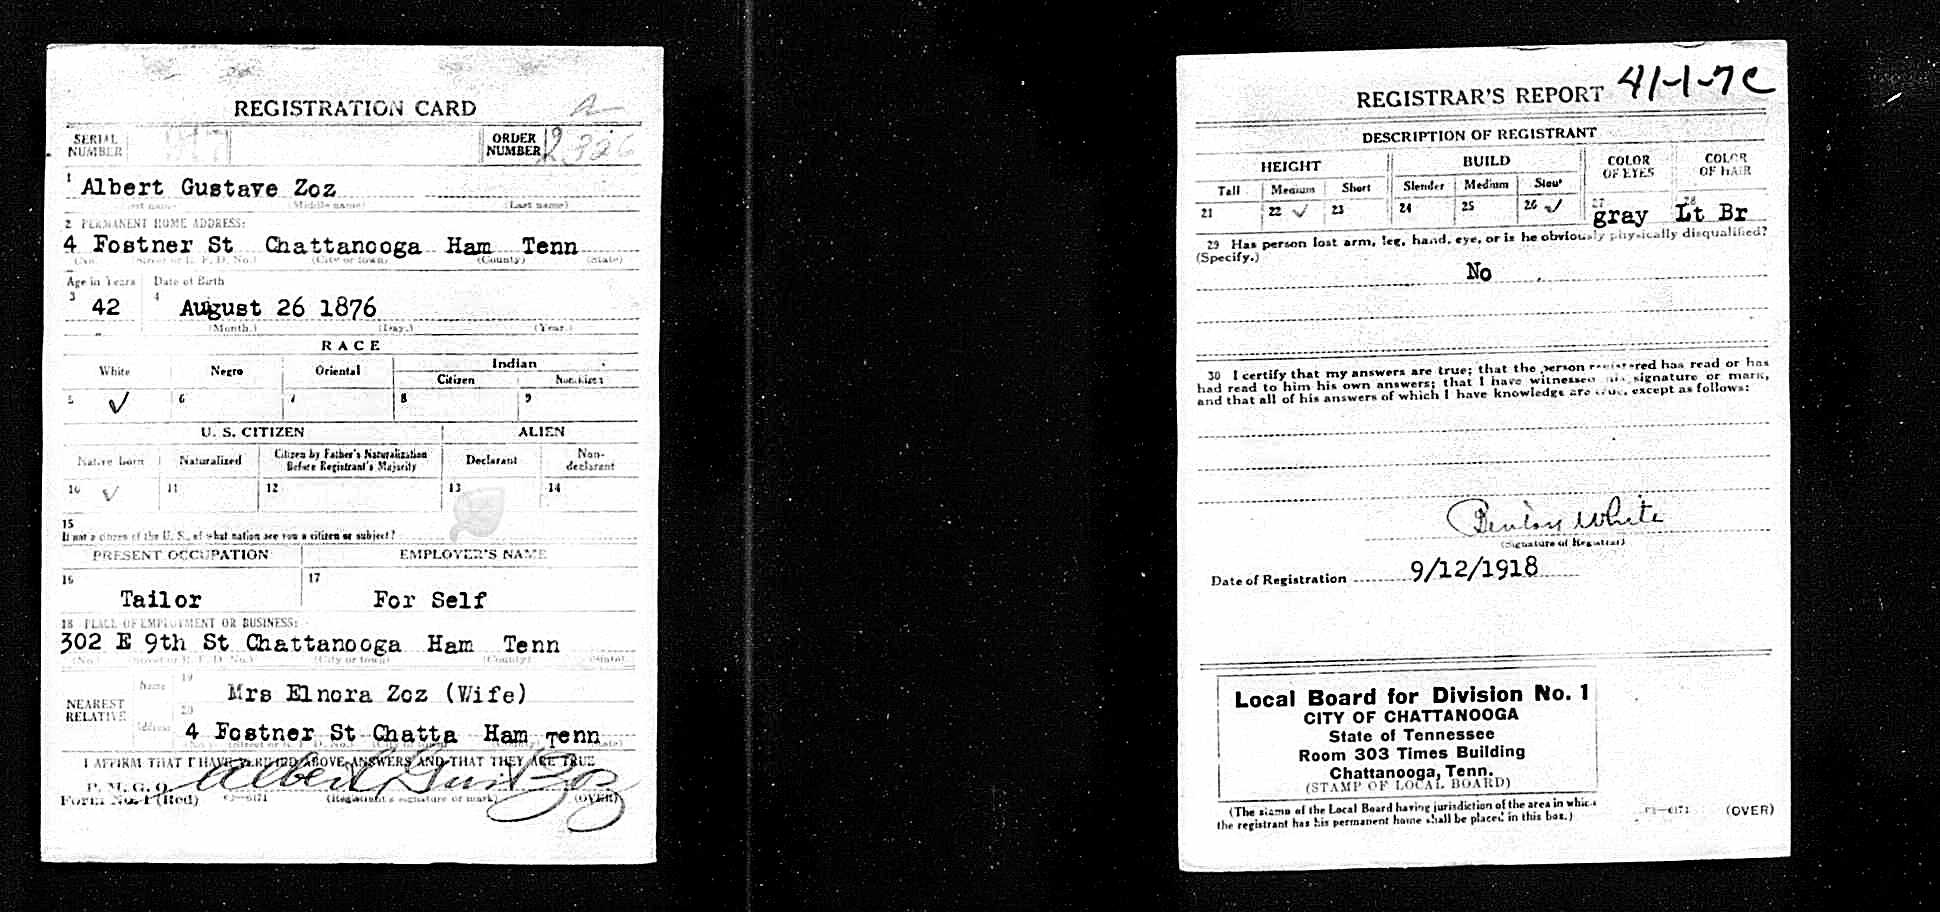 REGISTRATION CARD
SERIAL NUMBER
ORDER NUMBER 2326
1 Albert Gustave Zoz
(Middle name) (Last name)
2 PERMANENT HOME ADDRESS:
4 Fostner St Chattanooga Ham Tenn
(No.) (Street or R. F. D. No.) (City or town) (County) (State)
Age in Years Date of Birth
3 42 4 August 26 1876
(Month.) (Day.) (Year.)
RACE
White Negro Oriental Indian
Citizen Noncitizen
5 ✓ 6 7 8 9
U. S. CITIZEN ALIEN
Native Born Naturalized Citizen by Father's Naturalization Before Registrant's Majority Declarant Non-declarant
10 ✓ 11 12 13 14
15
If not a citizen of the U. S., of what nation are you a citizen or subject?
PRESENT OCCUPATION EMPLOYER'S NAME
16 17
Tailor For Self
18 PLACE OF EMPLOYMENT OR BUSINESS:
302 E 9th St Chattanooga Ham Tenn
(No.) (Street or R. F. D. No.) (City or town) (County) (State)
NEAREST RELATIVE
Name 19 Mrs Elnora Zoz (Wife)
Address 20 4 Fostner St Chatta Ham Tenn
(No.) (Street or R. F. D. No.) (City or town) (County) (State)
I AFFIRM THAT I HAVE VERIFIED ABOVE ANSWERS AND THAT THEY ARE TRUE
P. M. G. O.
Form No. 1 (Red) (Registrant's signature or mark) (OVER)
Albert Zoz
41-1-7 C
REGISTRAR'S REPORT
DESCRIPTION OF REGISTRANT
HEIGHT BUILD COLOR OF EYES COLOR OF HAIR
Tall Medium Short Slender Medium Stout
21 22 ✓ 23 24 25 26 ✓ 27 gray 28 Lt Br
29 Has person lost arm, leg, hand, eye, or is he obviously physically disqualified?
(Specify.)
No
30 I certify that my answers are true; that the person registered has read or has
had read to him his own answers; that I have witnessed his signature or mark,
and that all of his answers of which I have knowledge are true, except as follows:
Benton White
(Signature of Registrar)
Date of Registration 9/12/1918
Local Board for Division No. 1
CITY OF CHATTANOOGA
State of Tennessee
Room 303 Times Building
Chattanooga, Tenn.
(STAMP OF LOCAL BOARD)
(The stamp of the Local Board having jurisdiction of the area in which
the registrant has his permanent home shall be placed in this box.)
(OVER)